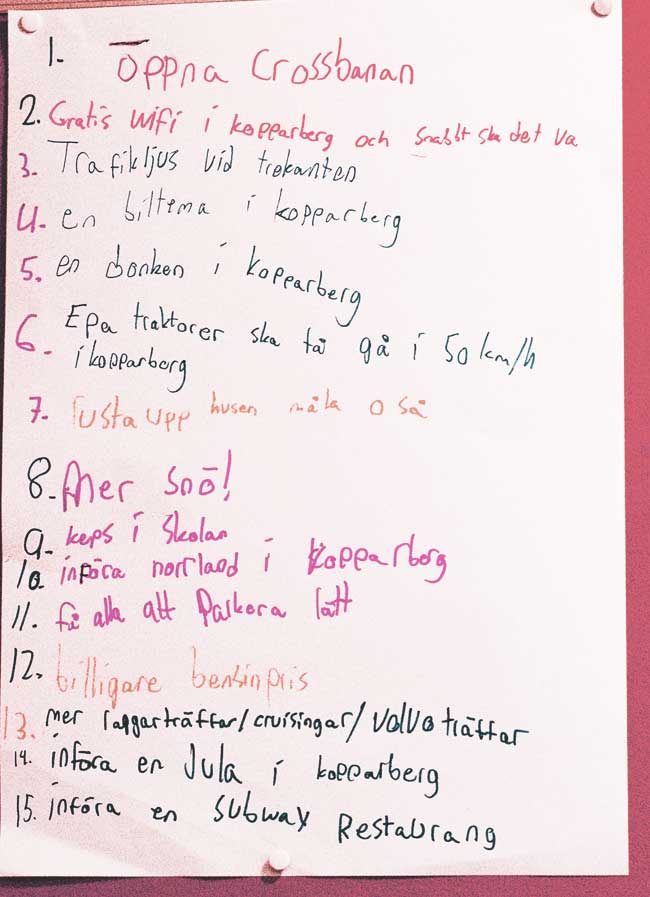 1. Öppna Crossbanan
2. Gratis wifi i kopparberg och snabbt ska det va
3. Trafikljus vid trekanten
4. en biltema i kopparberg
5. en donken i kopparberg
6. Epa traktorer ska få gå i 50 km/h
i kopparberg
7. rusta upp husen måla o så
8. Mer snö!
9. keps i skolan
10. införa norrland i kopparberg
11. få alla att parkera rätt
12. billigare bensinpris
13. mer raggarträffar/cruisingar/volvoträffar
14. införa en Jula i kopparberg
15. införa en subway Restaurang